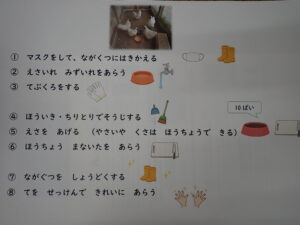 ① マスクをして、ながくつにはきかえる
② えさいれ みずいれをあらう
③ てぶくろをする
④ ほういき・ちりとりでそうじする
10ぱい
⑤ えさを あげる （やさいや くさは ほうちょうで きる）
⑥ ほうちょう まないたを あらう
⑦ ながぐつを しょうどくする
⑧ てを せっけんで きれいに あらう